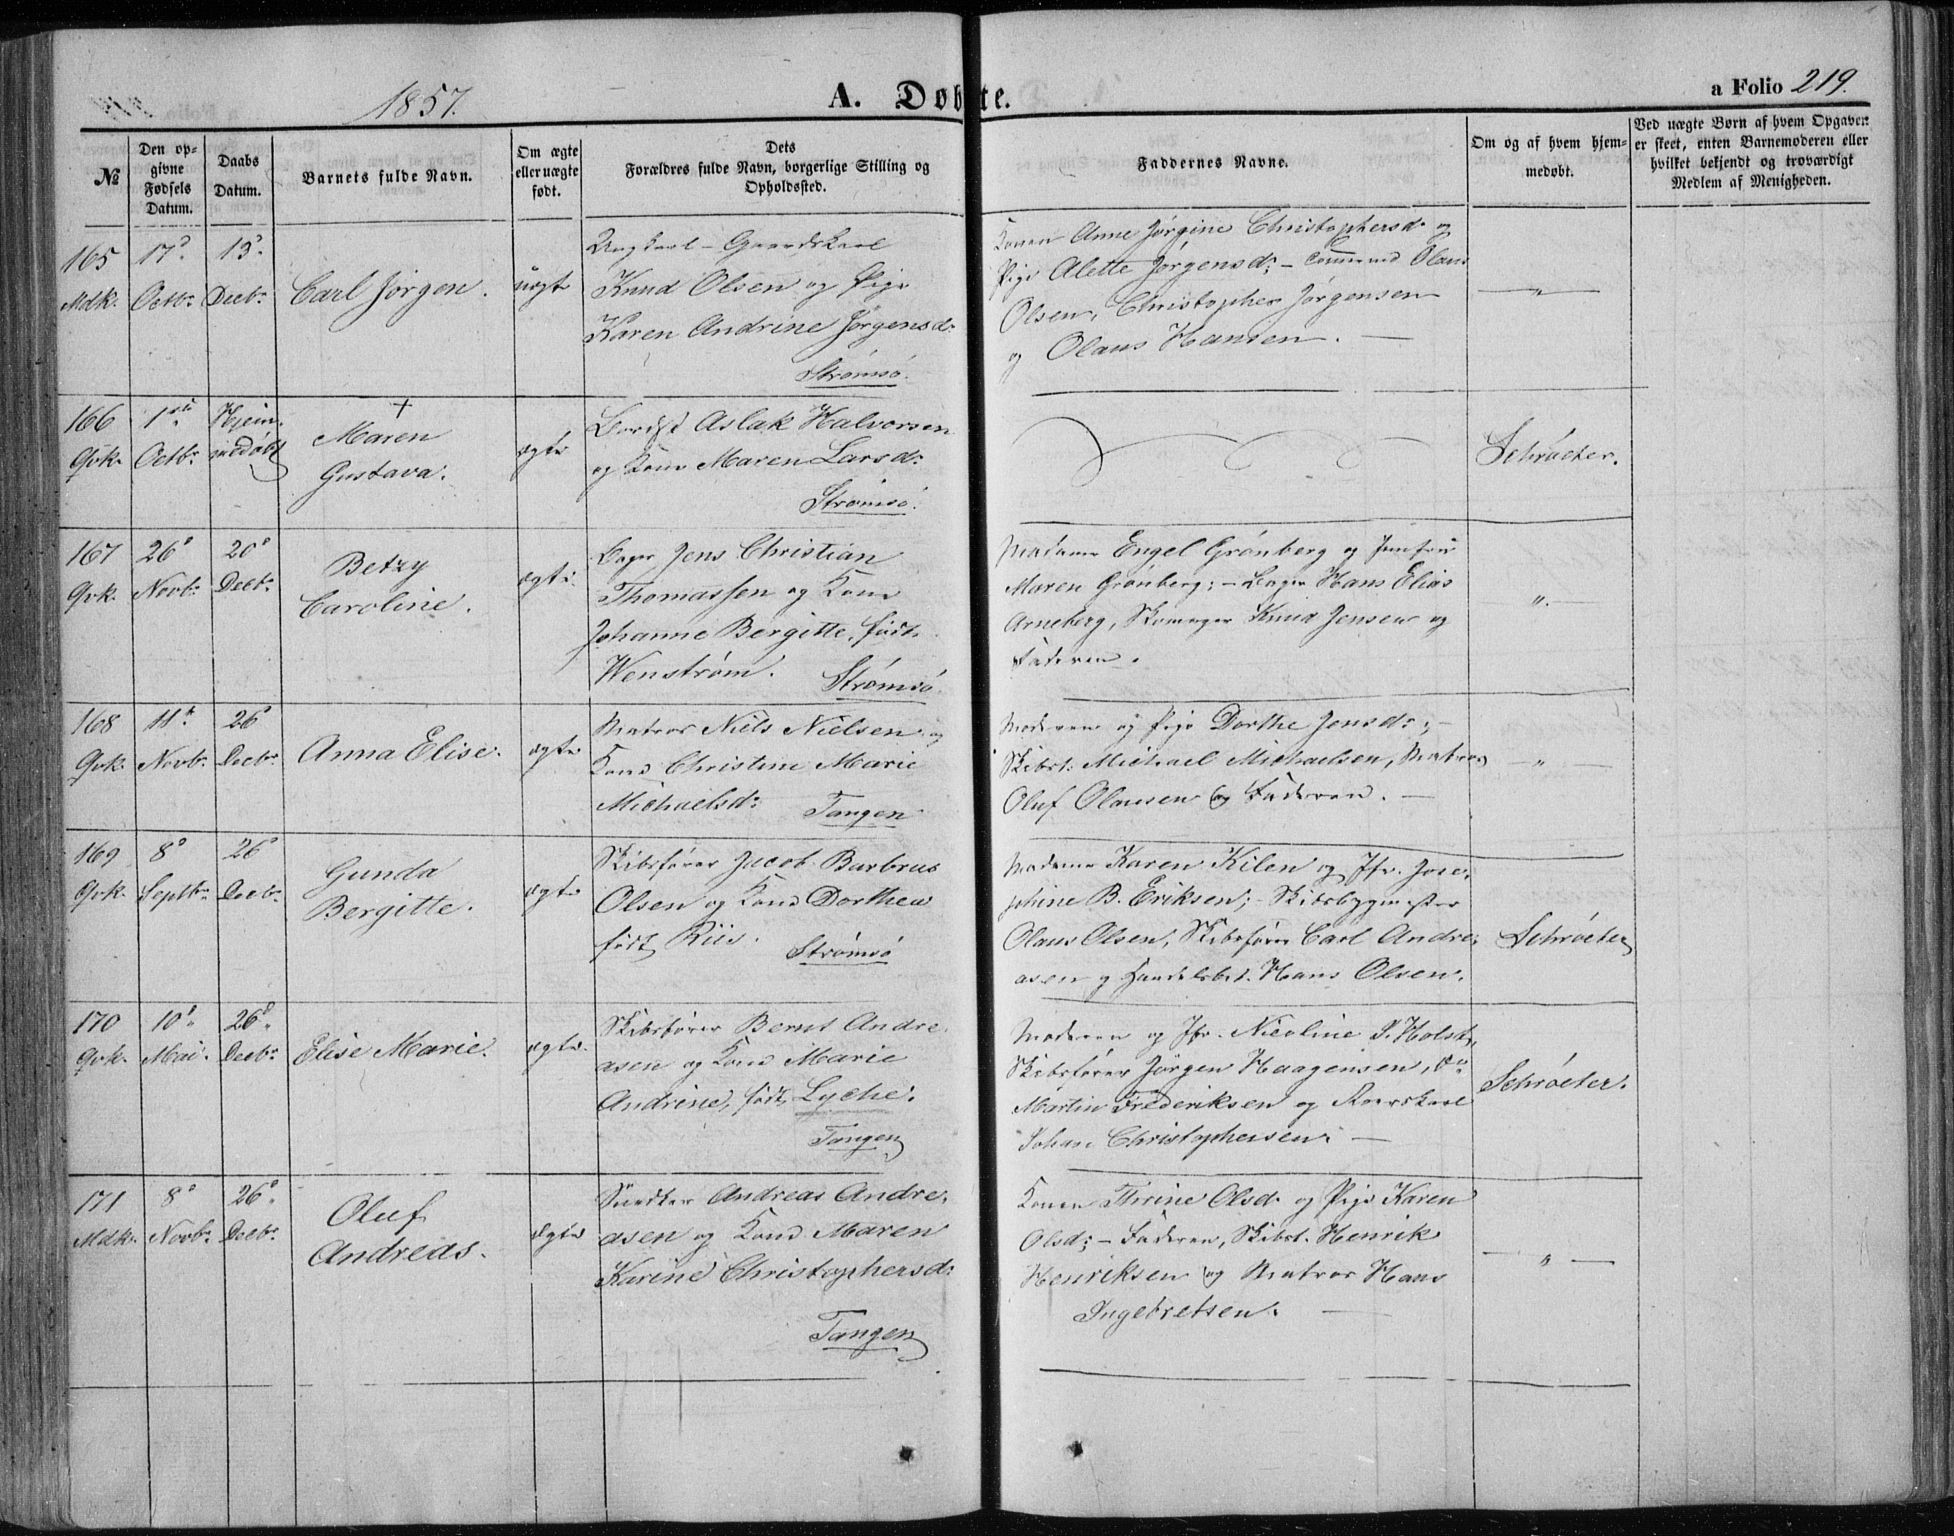 1857.
A. Døbte.
a Folio 219.
№
Den opgivne Fødsels Datum.
Daabs Datum.
Barnets fulde Navn.
Om ægte eller uægte født.
Dets Forældres fulde Navn, borgerlige Stilling og Opholdssted.
Faddernes Navne.
Om og af hvem hjemmedøbt.
Ved uægte Børn af hvem Opgaven er skeet, enten Barnemoderen eller hvilket bekjendt og troværdigt Medlem af Menigheden.
165
Mdk.
17de
Octbr
13de
Decbr
Carl Jørgen.
uægte
Ungkarl - Gaardskarl
Knud Olsen og Pige
Karen Andrine Jørgensd:
Strømsø.
Konen Anne Jørgine Christophersd. og
Pige Alette Jørgensd: - Olaus
Olsen, Christopher Jørgensen
og Olaus Hansen.
"
166
Qvk.
1ste
Octbr
Hjemmedøbt
+
Maren
Gustava.
ægte
Aslak Halvorsen
og Kone Maren Larsd:
Strømsø.
Schrøeter.
167
Qvk.
26de
Novbr
20de
Decbr
Betzy
Caroline.
ægte.
Bager Jens Christian
Thomassen og Kone
Johanne Bergitte, født
Wenstrøm.
Strømsø.
Madame Engel Grønberg og Jomfru
Maren Grønberg; - Bager Hans Elias
Arneberg, Skomager Knud Jensen og
Faderen.
".
168
Qvk.
11te
Novbr
26de
Decbr
Anna Elise.
ægte
Matros Niels Nielsen og
Kone Christine Marie
Michaelsd:
Tangen
Moderen og Pige Dorthe Jensd:; -
Skibst. Michael Michaelsen, Matros
Oluf Olausen og Faderen.
"
169
Qvk.
8de
Septbr
26de
Decbr
Gunda
Bergitte.
ægte
Skibsfører Jacob Barbrus
Olsen og Kone Dorthea
født Riis.
Strømsø
Madame Karen Kilen og Jfr. Josephine B. Eriksen; - Skibsbygmester
Olaus Olsen, Skibsfører Carl Andreasen og Handelsbet. Hans Olsen.
Schrøeter
170
Qvk.
10de
Mai.
26de
Decbr
Elise Marie.
ægte.
Skibsfører Bernt Andreasen og Kone Marie
Andrine, født Lyche.
Tangen
Moderen og Jfr. Nicoline S. Holst,
Skibsfører Jørgen Haagensen, Do
Martin Frederiksen og
Johan Christophersen.
Schrøeter.
171
Mdk.
8de
Novbr
26de
Decbr
Oluf
Andreas.
ægte
Snedker Andreas Andreasen og Kone Maren
Karine Christophersd:
Tangen
Konen Thrine Olsd. og Pige Karen
Olsd; - Faderen, Skibst. Henrik
Henriksen og Matros Hans
Ingebretsen.
"